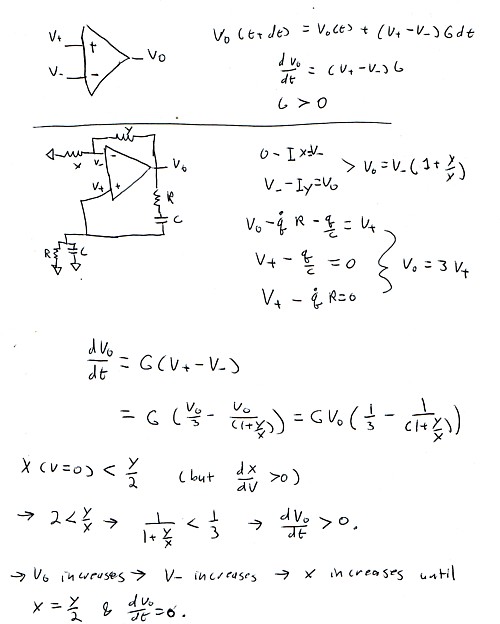 V+
+
V-
-
V0
V0(t+dt) = V0(t) + (V+ - V-) G dt
dV0/dt = (V+ - V-) G
G > 0
Y
X
V-
-
V0
V+
+
R
C
R
C
0 - Ix = V-
V- - Iy = V0
> V0 = V- (1 + Y/X)
V0 - q̇ R - q/C = V+
V+ - q/C = 0
V+ - q̇ R = 0
} V0 = 3 V+
dV0/dt = G (V+ - V-)
= G (V0/3 - V0/(1+Y/X)) = G V0 (1/3 - 1/(1+Y/X))
X (V=0) < Y/2 (but dX/dV > 0)
→ 2 < Y/X → 1/(1+Y/X) < 1/3 → dV0/dt > 0.
→ V0 increases → V- increases → X increases until
X = Y/2 & dV0/dt = 0.